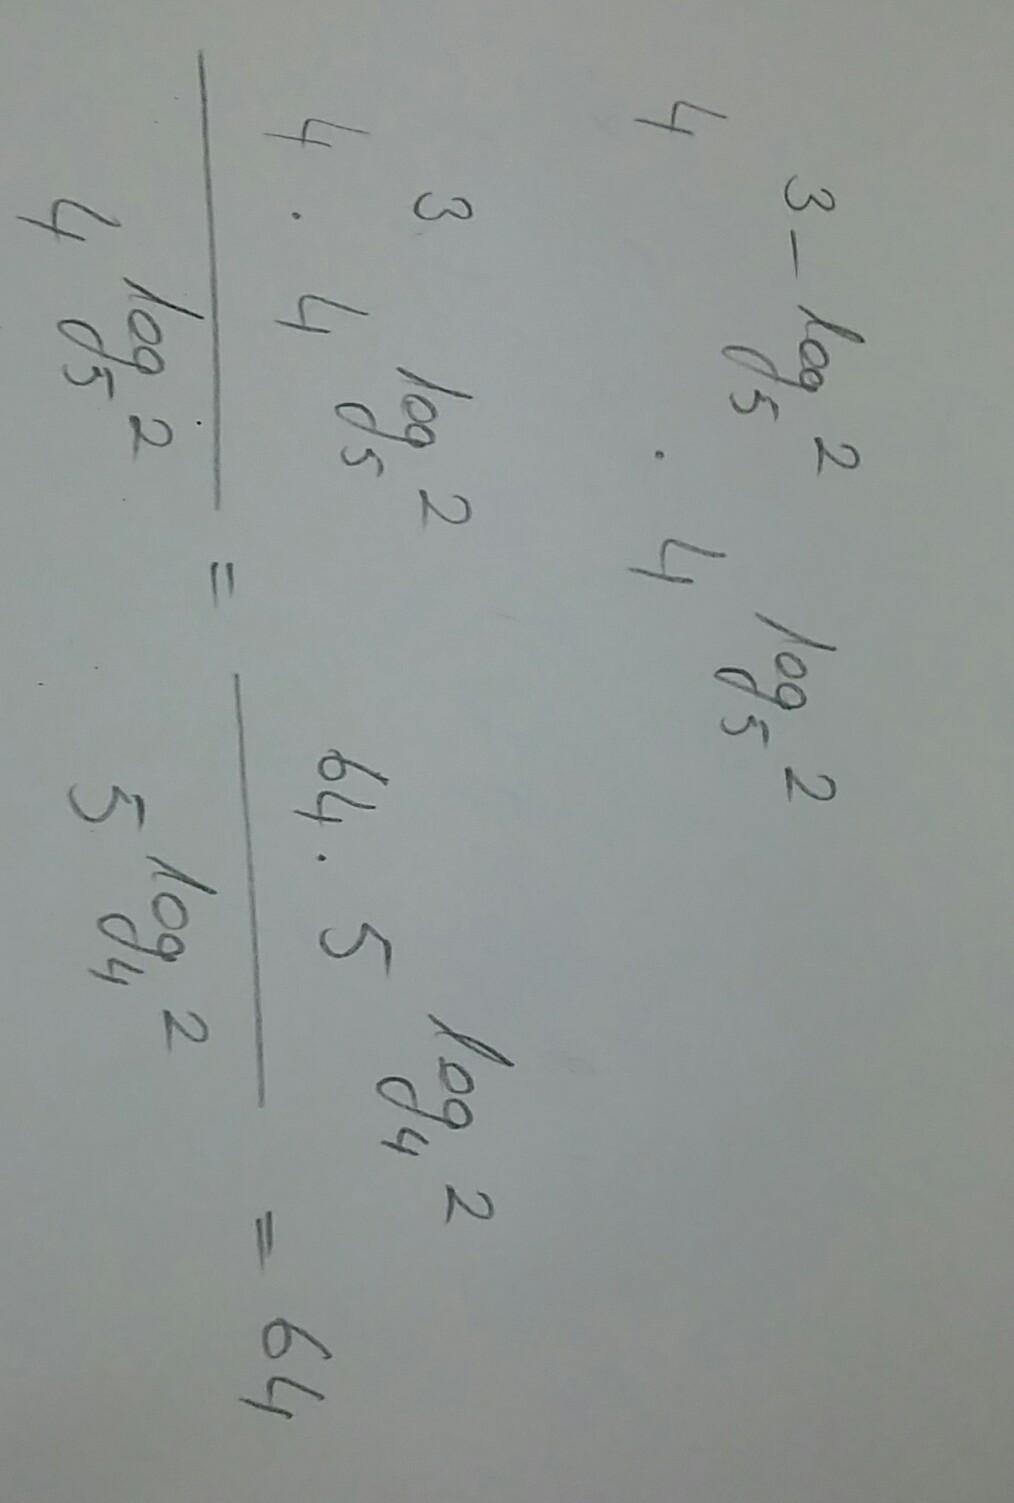 4^{3-log_5 2} · 4^{log_5 2}
\frac{4^3 · 4^{log_5 2}}{4^{log_5 2}} = \frac{64 · 5^{log_4 2}}{5^{log_4 2}} = 64